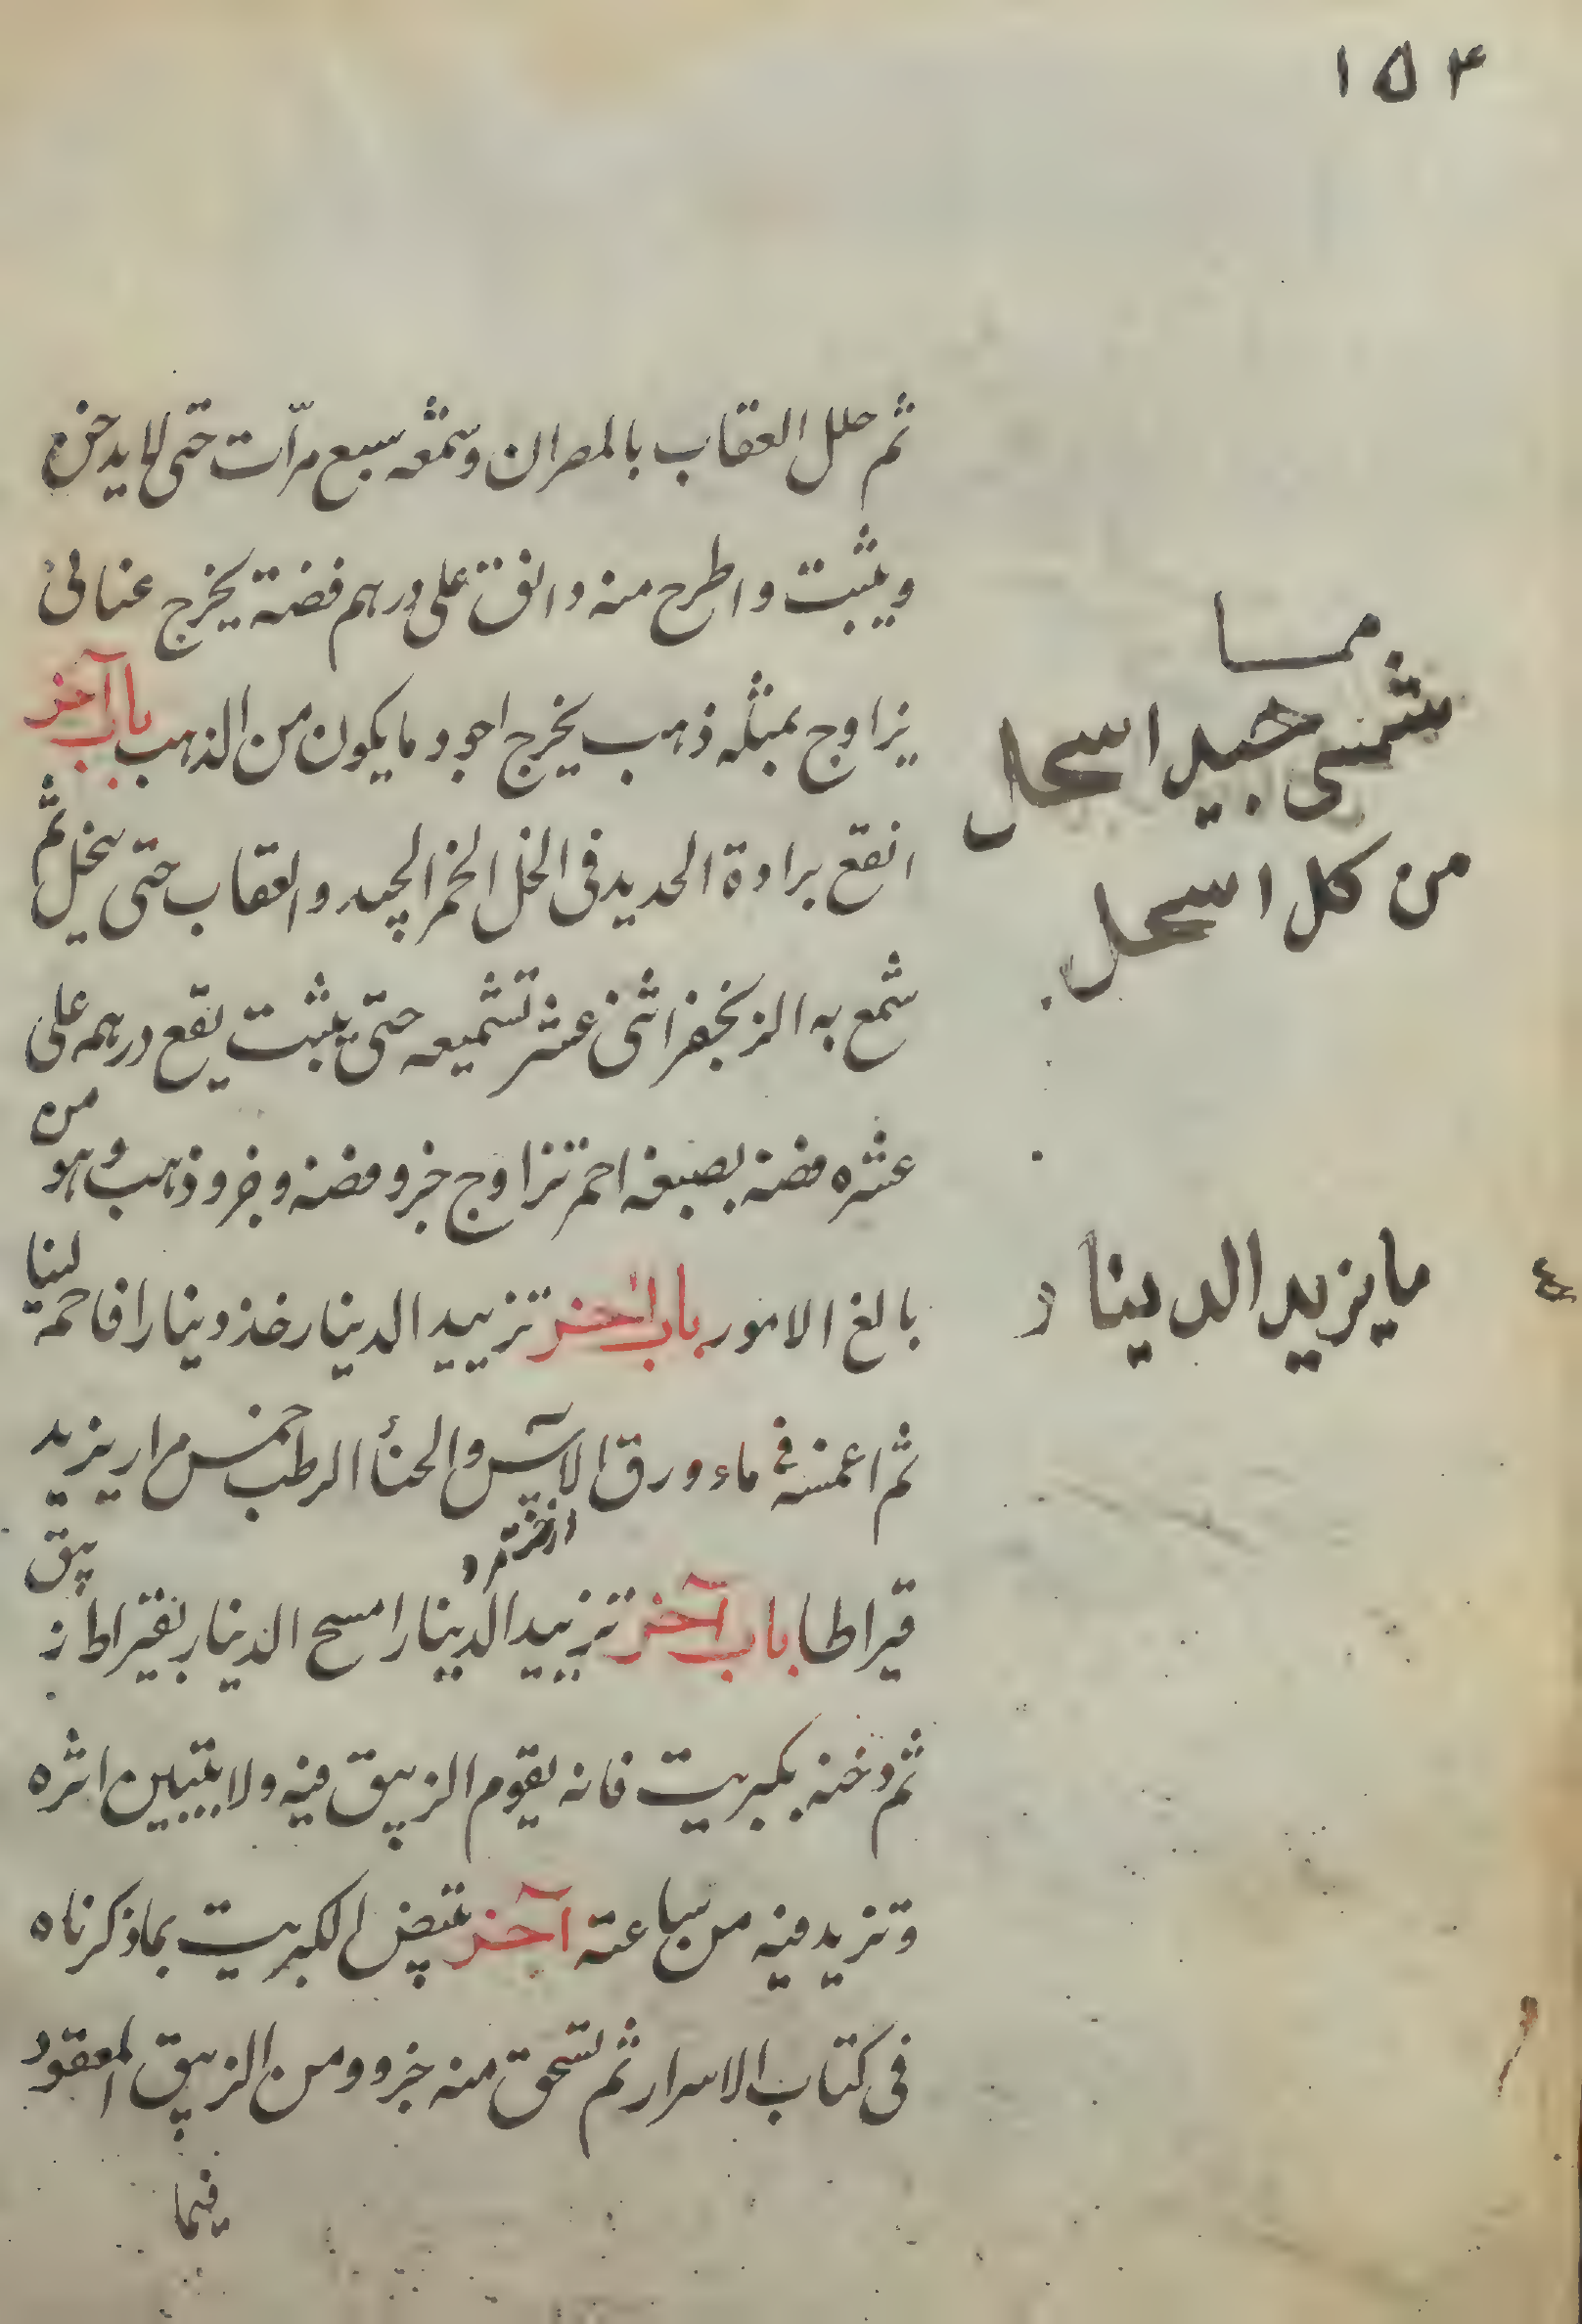 ١٥٤
ثم حلل العقاب بالمصران وشمّعه سبع مرّات حتى لا يدخن
ويثبت واطرح منه دانق على درهم فضة يخرج عنالى
يزاوج بمثله ذهب يخرج اجود ما يكون من الذهب باب آخر
انقع برادة الحديد فى الخل الخمر الجيد والعقاب حتى ينحل ثم
شمع به الزنجفر اثنى عشر تشميعه حتى يثبت يقع درهمه على
عشره فضة بصبغه احمر تزاوج جزو فضه وجزو ذهب وهو من
بالغ الامور باب اخر تزييد الدينار خذ دينارا فاحمه لينا
ثم اغمسه فى ماء ورق الآس والحنأ الرطب خمس مرار يزيد
قيراطا باب آخر تزييد الدينار امسح الدينار بقيراط زيبق
ثم دخنه بكبريت فانه يقوم الزيبق فيه ولا يتبين اثره
وتزيد فيه من ساعته آخر تبيض الكبريت بما ذكرناه
فى كتاب الاسرار ثم تسحق منه جزو ومن الزيبق المعقود
فيما
مما
شمسى جيد اسحل
من كل اسحل
ما يزيد الدينار